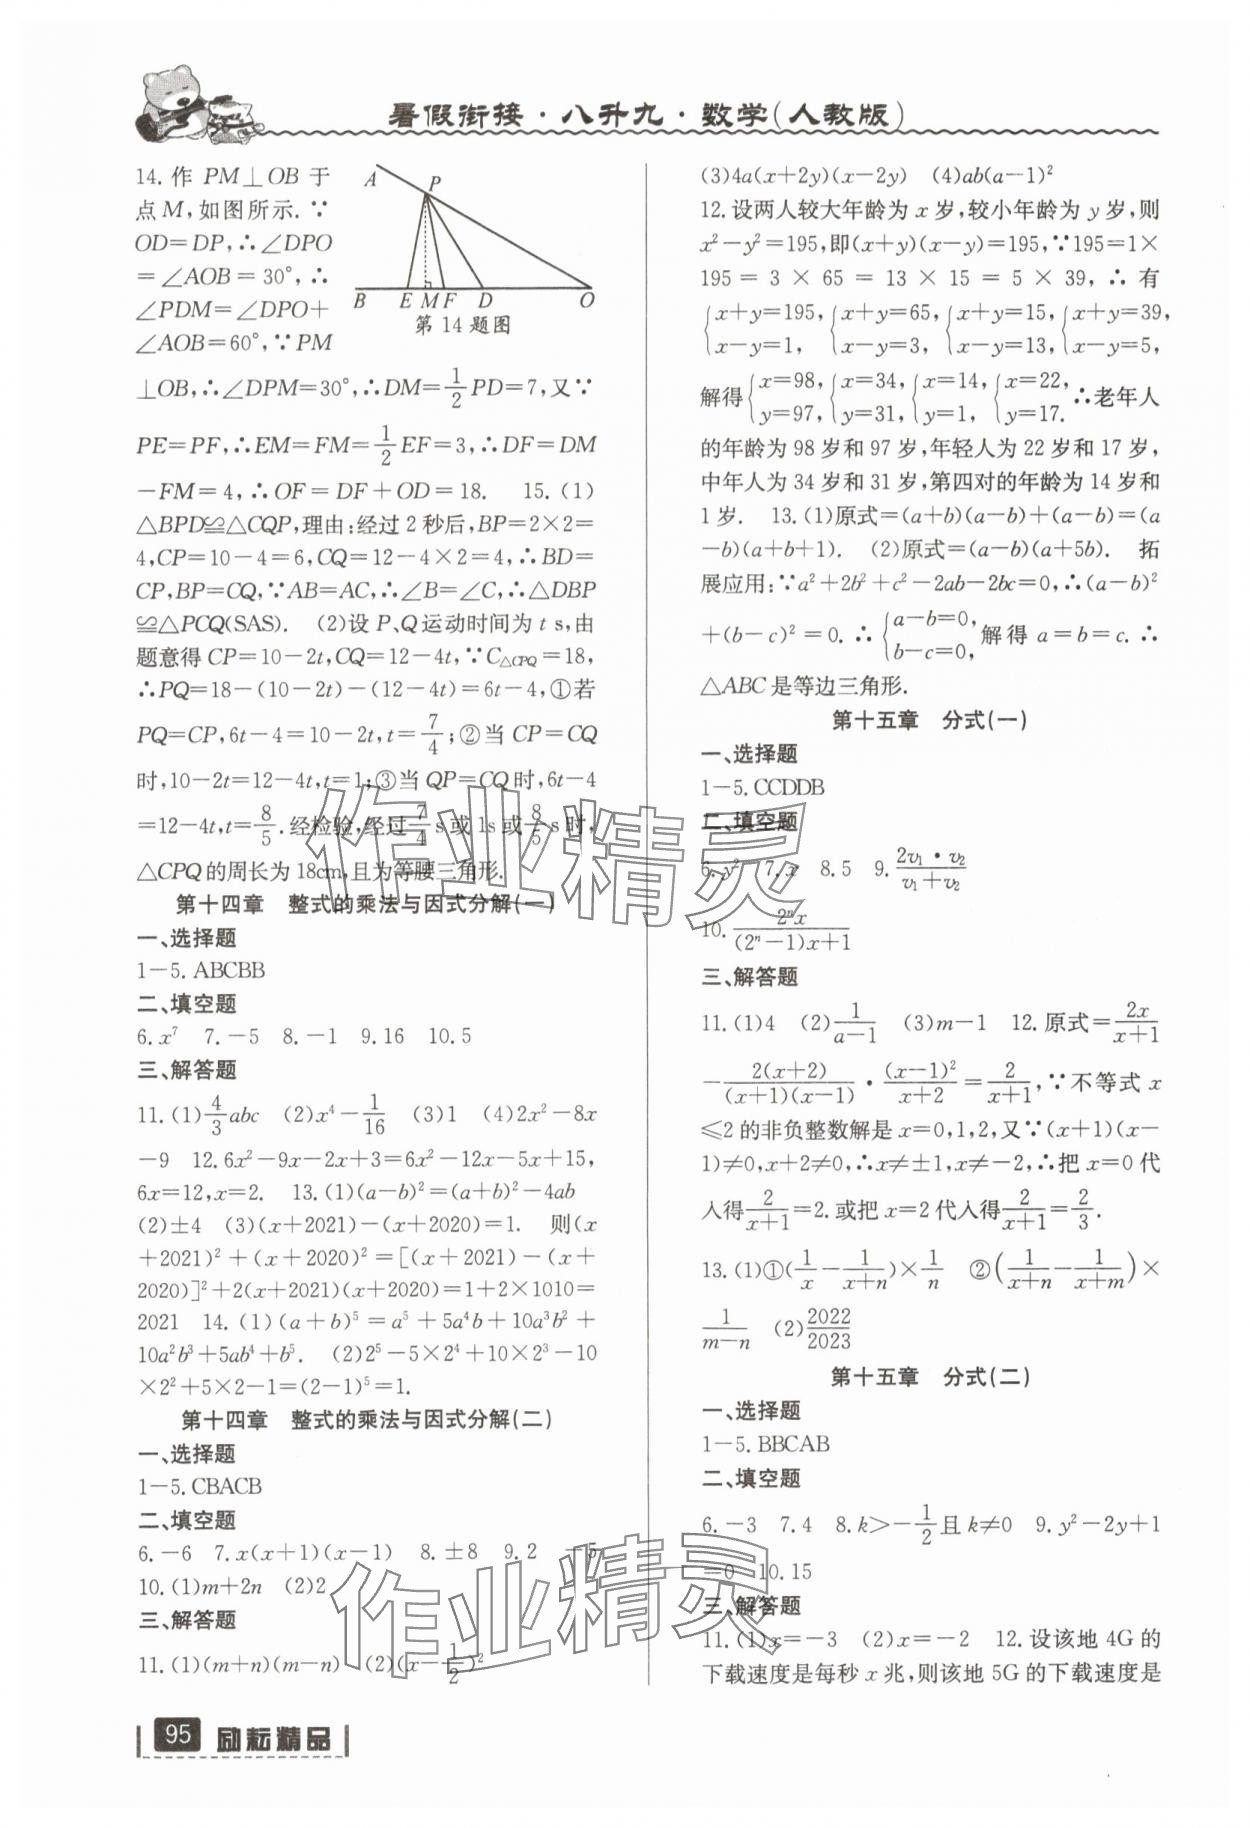 暑假衔接·八升九·数学(人教版)
14.作 PM⊥OB 于
点M,如图所示.∵
OD=DP,∴∠DPO
=∠AOB=30°,∴
∠PDM=∠DPO+
∠AOB=60°,∵PM
A P B E M F D O
第14题图
⊥OB,∴∠DPM=30°,∴DM=1/2 PD=7,又∵
PE=PF,∴EM=FM=1/2 EF=3,∴DF=DM
-FM=4,∴OF=DF+OD=18. 15.(1)
△BPD≌△CQP,理由:经过2秒后,BP=2×2=
4,CP=10-4=6,CQ=12-4×2=4,∴BD=
CP,BP=CQ,∵AB=AC,∴∠B=∠C,∴△DBP
≌△PCQ(SAS). (2)设P、Q运动时间为t s,由
题意得CP=10-2t,CQ=12-4t,∵C△CPQ=18,
∴PQ=18-(10-2t)-(12-4t)=6t-4,①若
PQ=CP,6t-4=10-2t,t=7/4;②当CP=CQ
时,10-2t=12-4t,t=1;③当QP=CQ时,6t-4
=12-4t,t=8/5.经检验,经过7/4s或1s或8/5s时,
△CPQ的周长为18cm,且为等腰三角形.
第十四章 整式的乘法与因式分解(一)
一、选择题
1-5.ABCBB
二、填空题
6.x⁷ 7.-5 8.-1 9.16 10.5
三、解答题
11.(1)4/3 abc (2)x⁴-1/16 (3)1 (4)2x²-8x
-9 12.6x²-9x-2x+3=6x²-12x-5x+15,
6x=12,x=2. 13.(1)(a-b)²=(a+b)²-4ab
(2)±4 (3)(x+2021)-(x+2020)=1. 则(x
+2021)²+(x+2020)²=[(x+2021)-(x+
2020)]²+2(x+2021)(x+2020)=1+2×1010=
2021 14.(1)(a+b)⁵=a⁵+5a⁴b+10a³b²+
10a²b³+5ab⁴+b⁵. (2)2⁵-5×2⁴+10×2³-10
×2²+5×2-1=(2-1)⁵=1.
第十四章 整式的乘法与因式分解(二)
一、选择题
1-5.CBACB
二、填空题
6.-6 7.x(x+1)(x-1) 8.±8 9.2 -5
10.(1)m+2n (2)2
三、解答题
11.(1)(m+n)(m-n) (2)(x-1/2)²
(3)4a(x+2y)(x-2y) (4)ab(a-1)²
12.设两人较大年龄为x岁,较小年龄为y岁,则
x²-y²=195,即(x+y)(x-y)=195,∵195=1×
195=3×65=13×15=5×39,∴有
{x+y=195, {x+y=65, {x+y=15, {x+y=39,
x-y=1, x-y=3, x-y=13, x-y=5,
解得{x=98, {x=34, {x=14, {x=22, ∴老年人
y=97, y=31, y=1, y=17.
的年龄为98岁和97岁,年轻人为22岁和17岁,
中年人为34岁和31岁,第四对的年龄为14岁和
1岁. 13.(1)原式=(a+b)(a-b)+(a-b)=(a
-b)(a+b+1). (2)原式=(a-b)(a+5b). 拓
展应用:∵a²+2b²+c²-2ab-2bc=0,∴(a-b)²
+(b-c)²=0.∴{a-b=0, b-c=0, 解得a=b=c.∴
△ABC是等边三角形.
第十五章 分式(一)
一、选择题
1-5.CCDDB
二、填空题
6.y² 7.x 8.5 9.2v₁·v₂/(v₁+v₂)
10.2ⁿx/((2ⁿ-1)x+1)
三、解答题
11.(1)4 (2)1/(a-1) (3)m-1 12.原式=2x/(x+1)
-2(x+2)/((x+1)(x-1))·(x-1)²/(x+2)=2/(x+1),∵不等式x
≤2的非负整数解是x=0,1,2,又∵(x+1)(x-
1)≠0,x+2≠0,∴x≠±1,x≠-2,∴把x=0代
入得2/(x+1)=2.或把x=2代入得2/(x+1)=2/3.
13.(1)①(1/x-1/(x+n))×1/n ②(1/(x+n)-1/(x+m))×
1/(m-n) (2)2022/2023
第十五章 分式(二)
一、选择题
1-5.BBCAB
二、填空题
6.-3 7.4 8.k>-1/2且k≠0 9.y²-2y+1
=0 10.15
三、解答题
11.(1)x=-3 (2)x=-2 12.设该地4G的
下载速度是每秒x兆,则该地5G的下载速度是
95 励耘精品
作业精灵
作业精灵